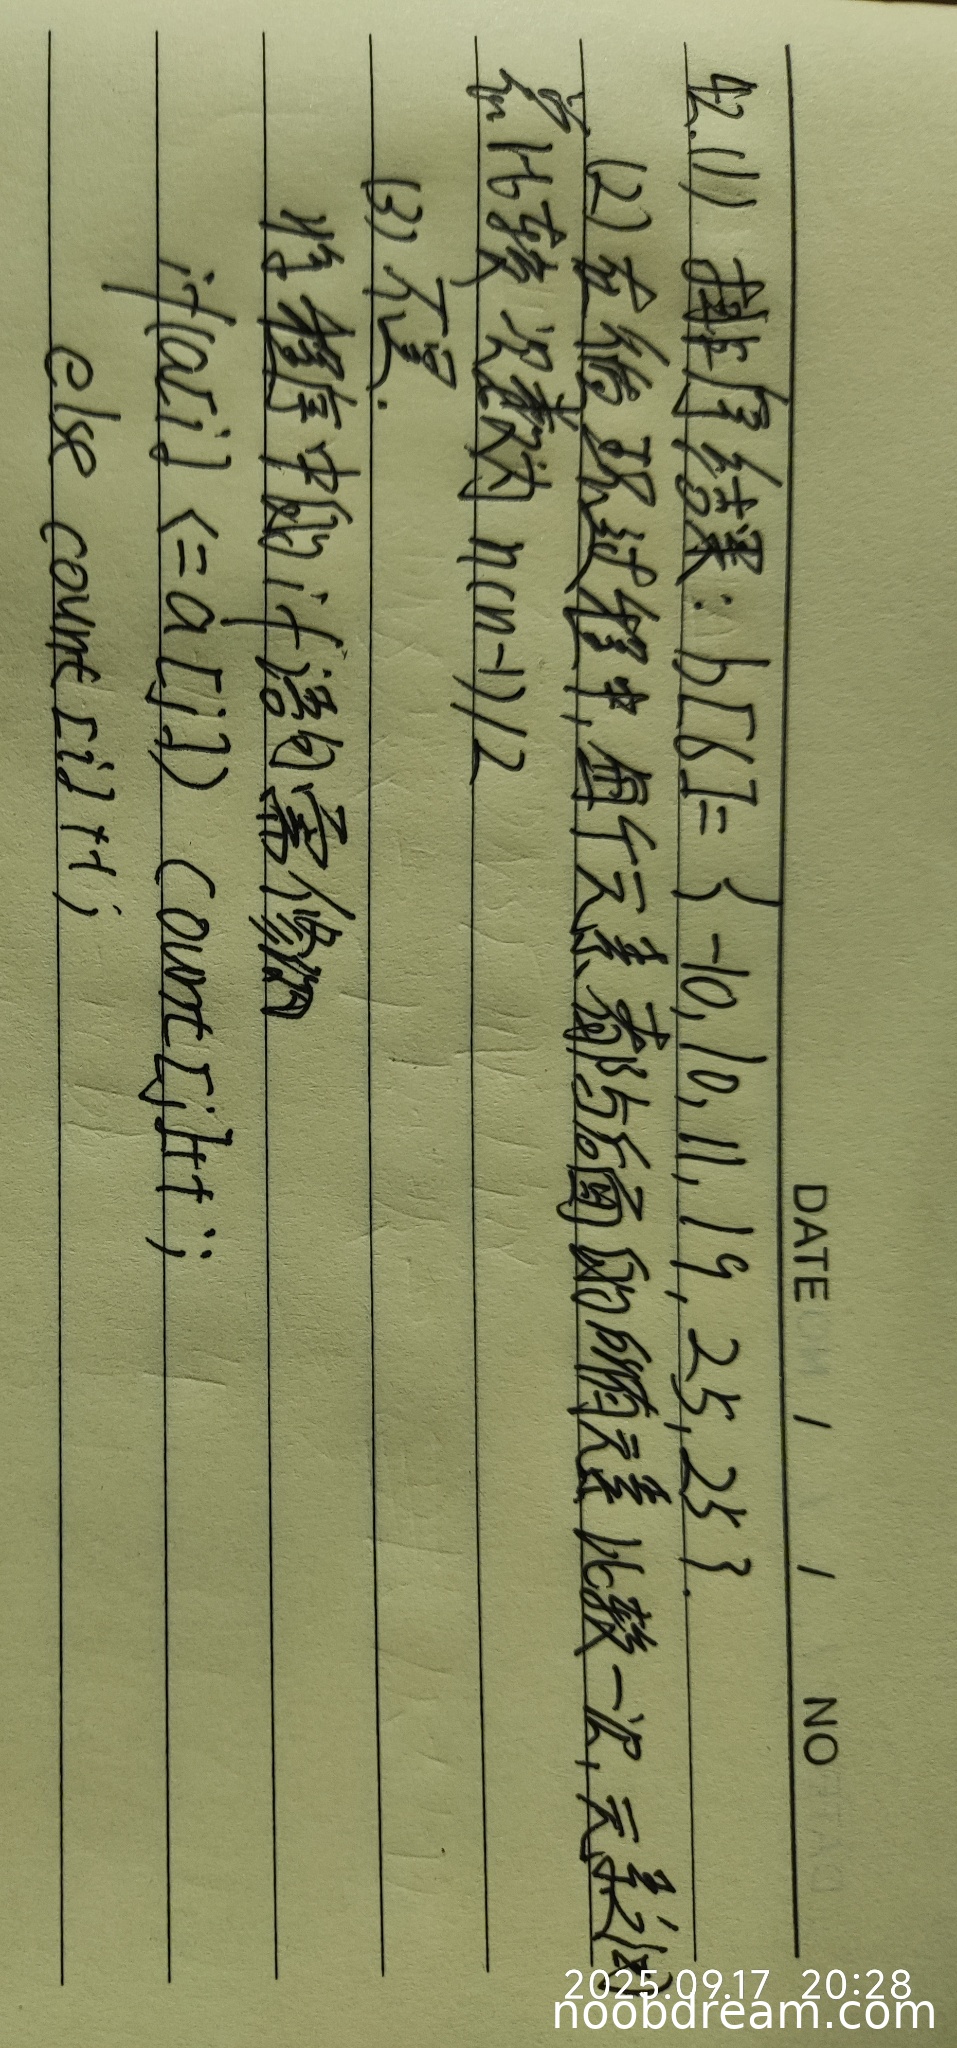 DATE / / NO
42.(1) 排序结果:b[6]={-10,10,11,19,25,25}.
(2) 在给过程中,每个元素都与后面的所有元素比较一次,元素之间
总比较次数为 n(n-1)/2
(3) 不是.
将程序中的if语句需修改
if(a[i]<=a[j]) count[j]++;
else count[i]++;
2025.09.17 20:28
noobdream.com